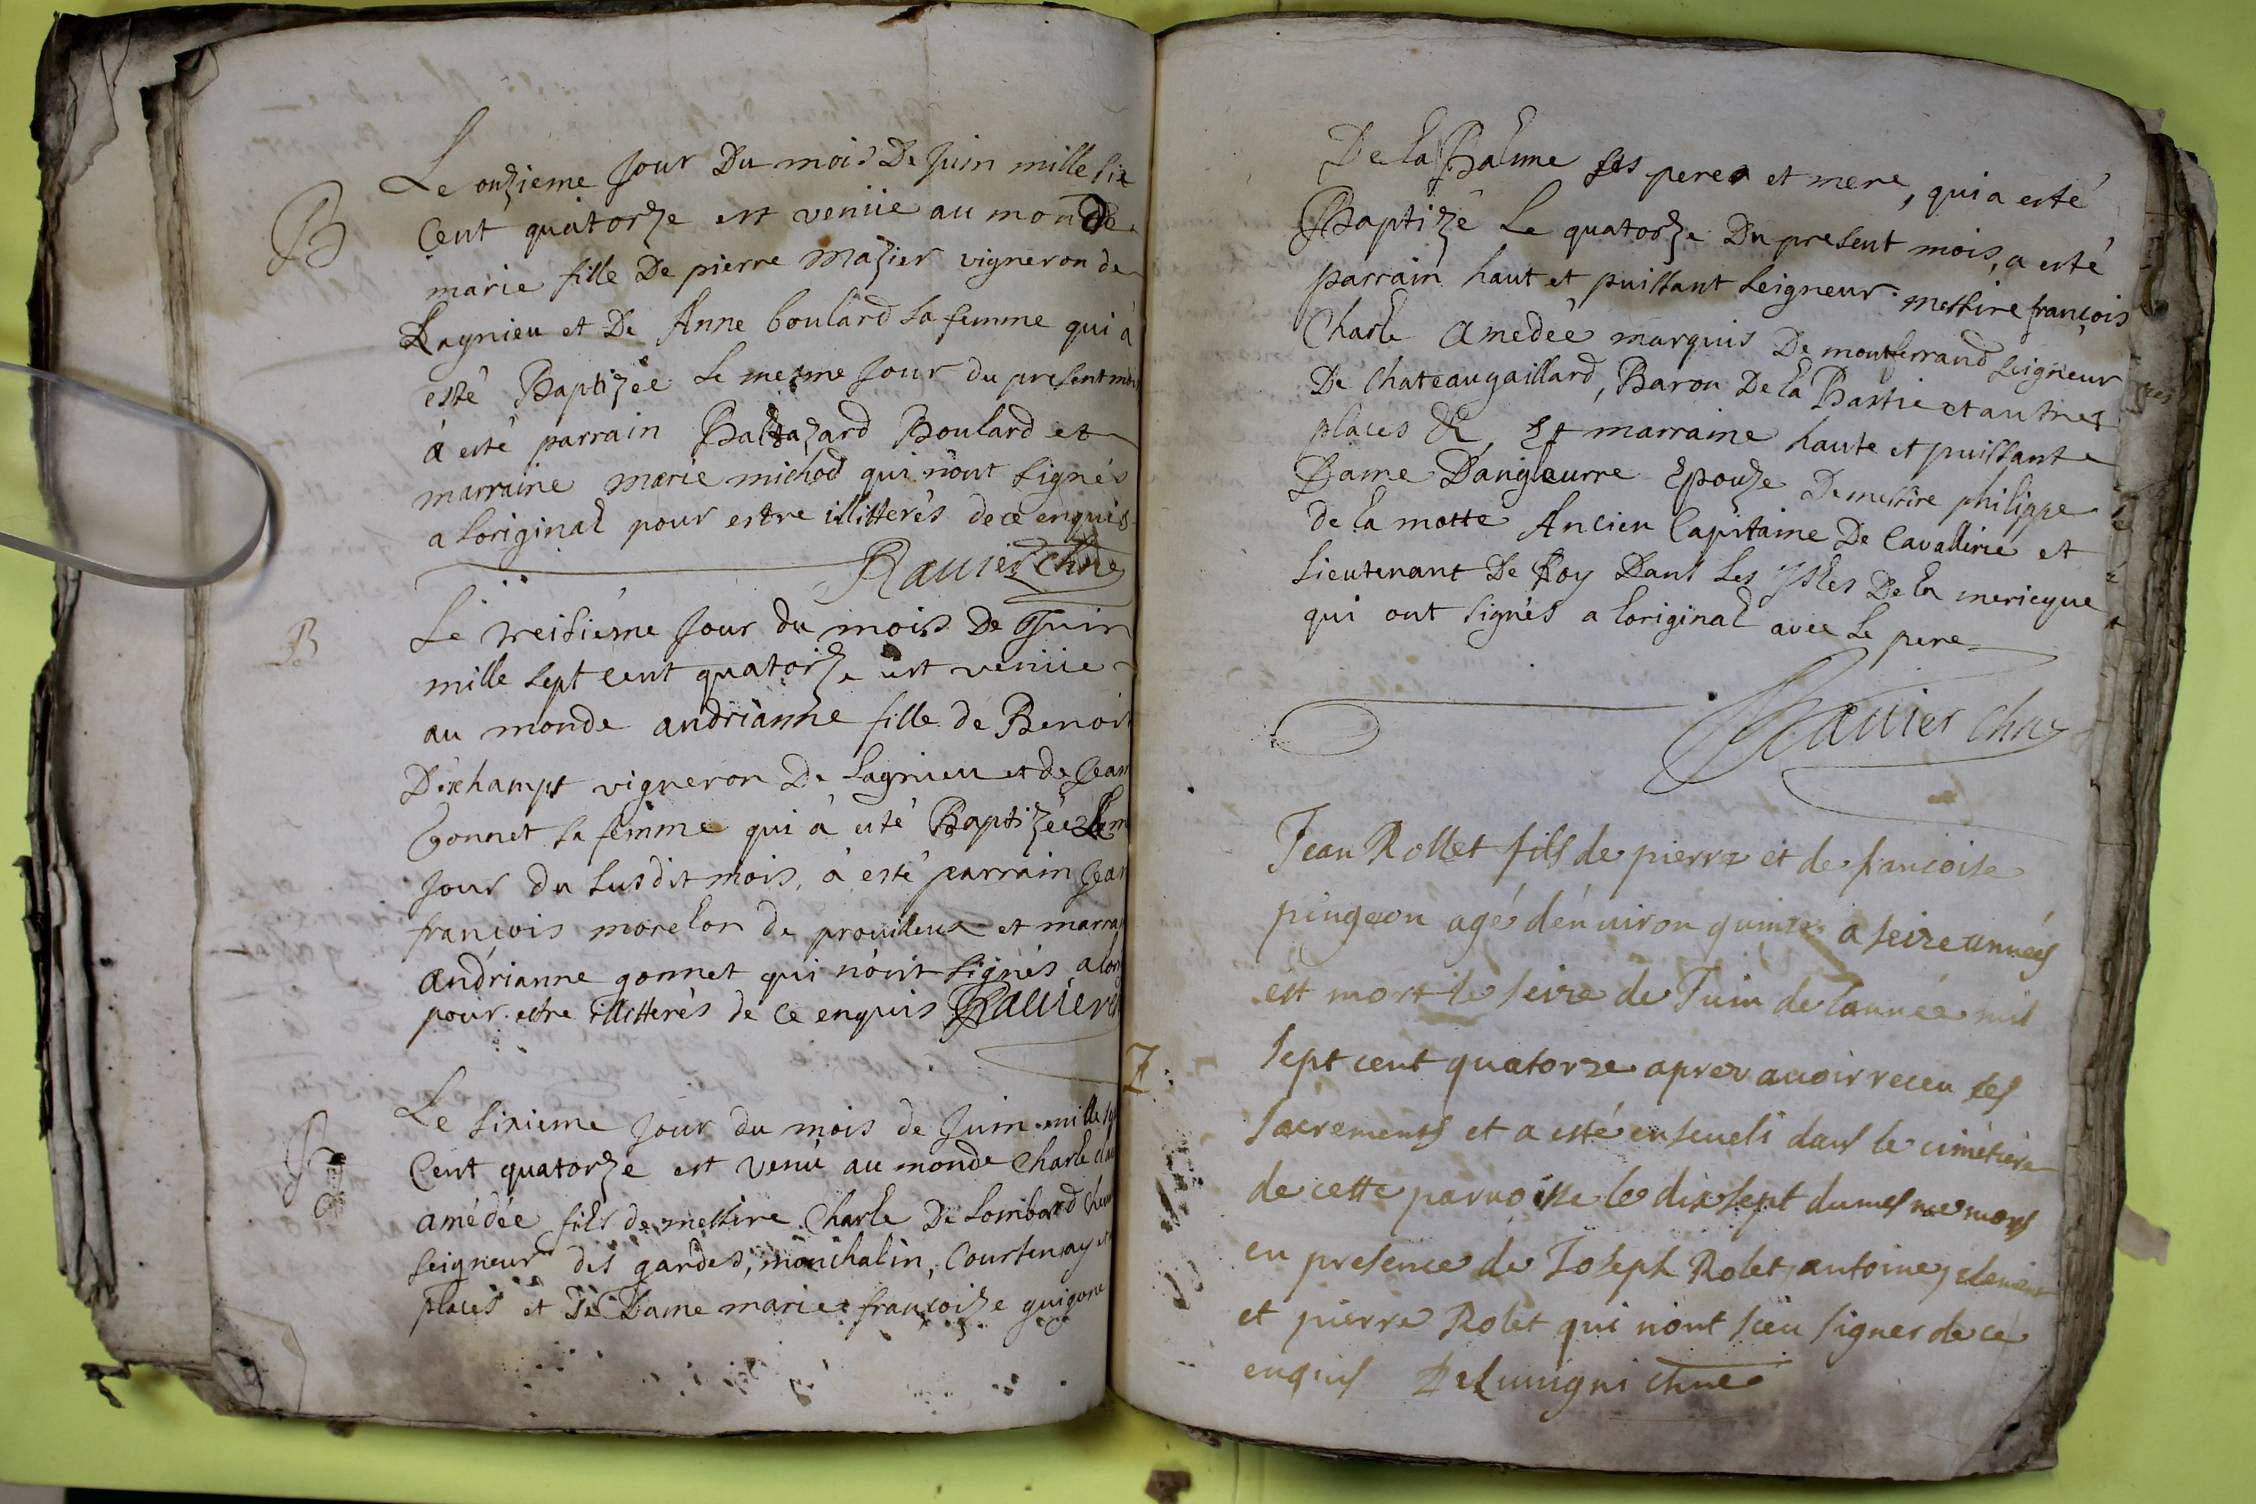 B
Le onzieme Jour Du mois De Juin mille six
Cent quatorze est venüe au monde
marie fille De pierre Mazier vigneron de
Lagnieu et De Anne boulard sa femme qui à
esté Baptizée Le mesme Jour du present mois
à esté parrain Baltazard Boulard et
marraine marie michod qui n'ont signés
a Loriginal pour estre illitterés de ce enquis
Rauier Chne
B
Le treisiéme Jour du mois De Juin
mille sept cent quatorze est venüe
au monde andrianne fille de Benoit
Dêschamps vigneron De Lagnieu et de Jean
gonnet sa femme qui à esté Baptizée Le m
Jour du susdit mois, à esté parrain Jean
françois morelon de prouilleux et marra
andrianne gonnet qui n'ont signés a lori
pour estre illitterés de ce enquis Rauier ch
B
Le sixieme Jour du mois de Juin mille sept
Cent quatorze est venu au monde Charle clau
amédée fils de messire Charle De Lombard Cheu
seigneur des gardes, monchalin, Courtenay et
places et De Dame marie françoize guigone
De La Balme ses peres et mere, qui a esté
Baptizé Le quatorze Du present mois, a esté
parrain haut et puissant seigneur messire françois
Charle Amedée marquis De montferrand seigneur
De chateaugaillard, Baron De la Bastie et autres
places &c, Et marraine haute et puissante
Dame Dangleurre Epouze De messire philippe
de la motte Ancien Capitaine De Cavallerie et
Lieutenant De Roy Dans Les Isles De la mericque
qui ont signés a loriginal avec Le pere
Rauier chne
Jean Rollet fils de pierre et de francoise
pingeon agé dénuiron quinze a seize années
est mort le seize de Juin de lannée mil
Z
sept cent quatorze apres auoir receu les
sacrements et a esté enseueli dans le cimétiere
de cette parroisse le dix sept du mesme moys
en presence de Joseph Rolet, antoine
et pierre Rolet qui n'ont sceu signer de ce
enquis Delunigni chne